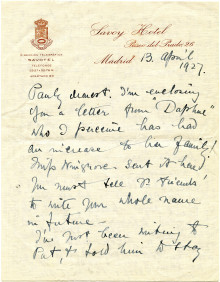 Savoy Hotel
Paseo del Prado 26
Madrid 13 April
1927.
dearest, I'm enclosing
you a letter from "Daphne"
who I perceive has had
an increase to her family!
Miss sent it here.
You must tell yr friends
to write your whole name
in future—
I've just been writing to
Pat & told him to stay